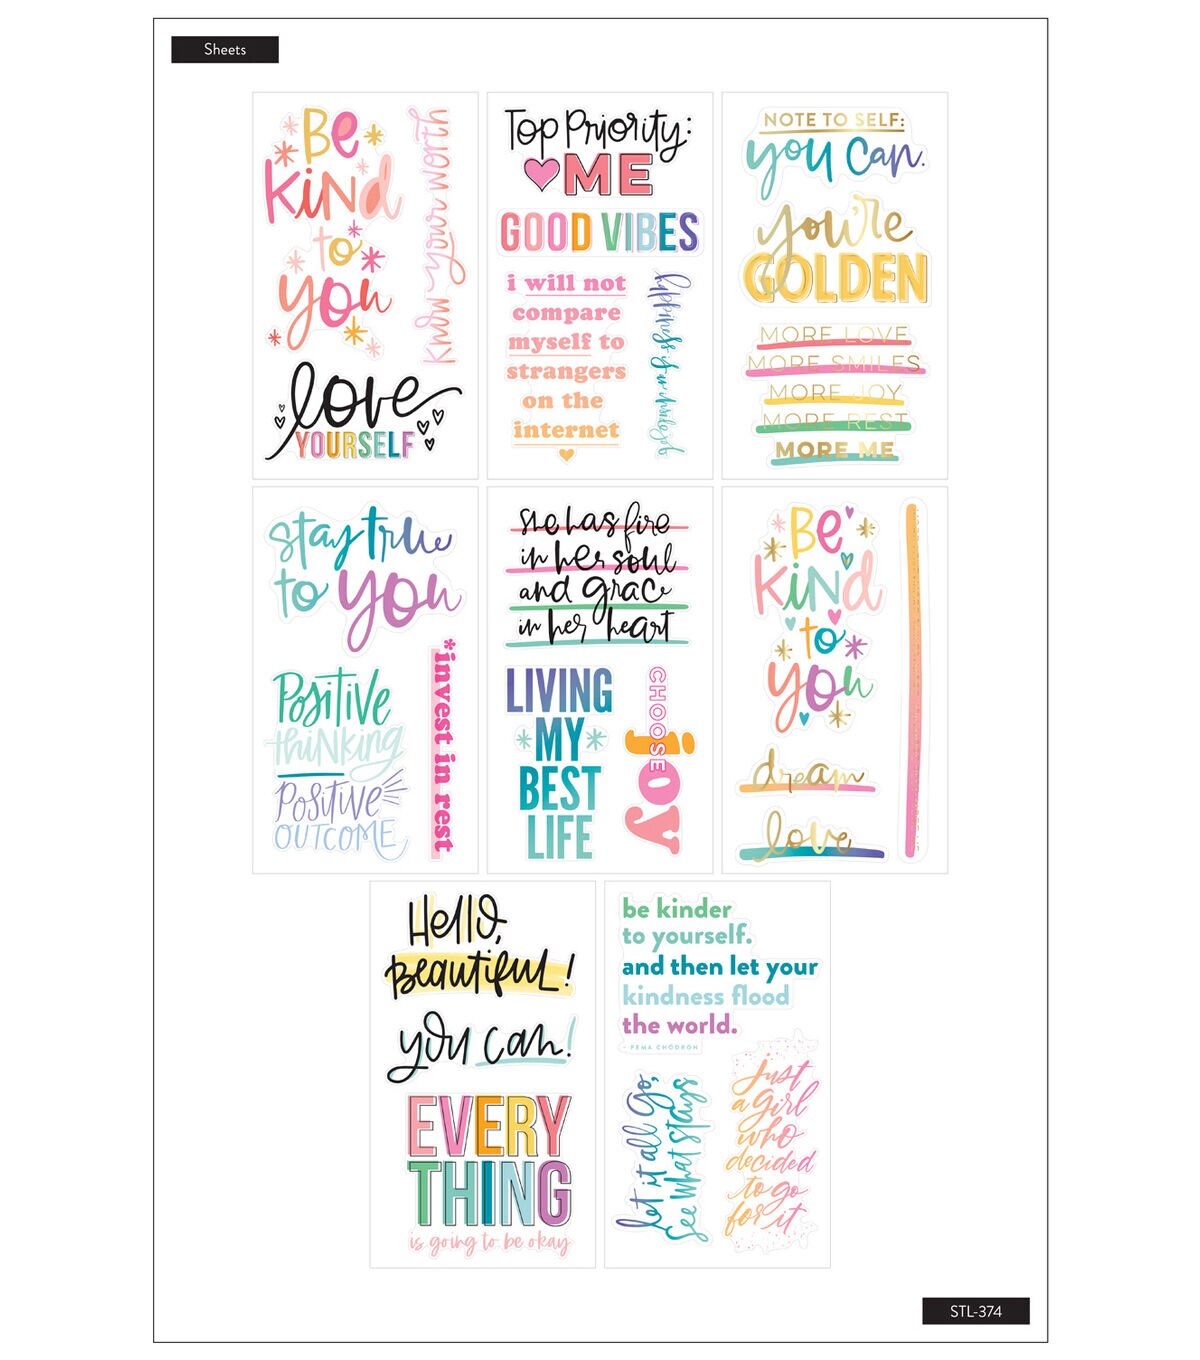 Sheets
Be
Kind
to
you
Know your worth
love
YOURSELF
Top Priority:
ME
GOOD VIBES
i will not
compare
myself to
strangers
on the
internet
happiness is an inside job
NOTE TO SELF:
you can.
you're
GOLDEN
MORE LOVE
MORE SMILES
MORE JOY
MORE REST
MORE ME
stay true
to you
Positive
thinking
Positive
OUTCOME
*invest in rest
She has fire
in her soul
and grace
in her heart
LIVING
MY
BEST
LIFE
CHOOSE
joy
Be
KiND
to
you
dream
love
Hello,
Beautiful!
you can!
EVERY
THING
is going to be okay
be kinder
to yourself.
and then let your
kindness flood
the world.
- PEMA CHÖDRÖN
let it all go,
see what stays
just
a girl
who
decided
to go
for it
STL-374